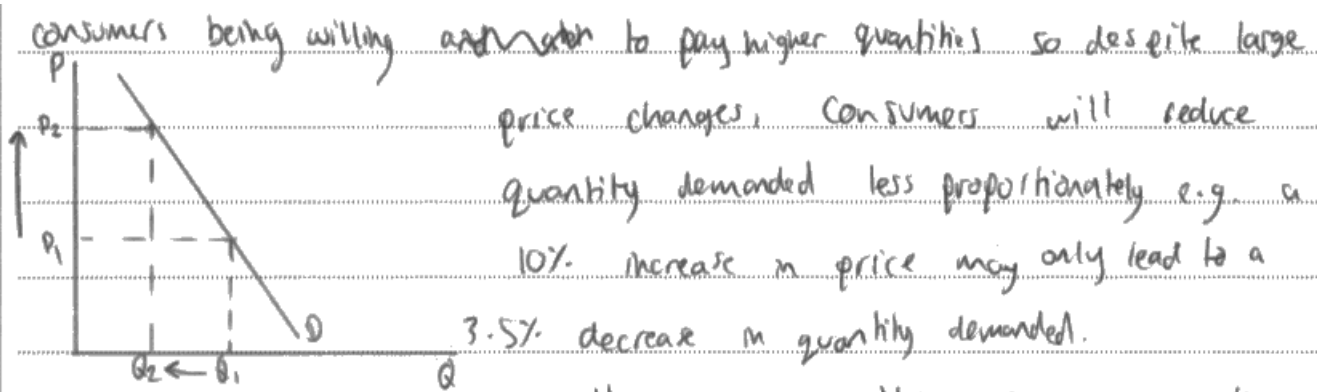 consumers being willing to pay higher quantities so despite large
P
P2
price changes, consumers will reduce
quantity demanded less proportionately e.g. a
P1
10% increase in price may only lead to a
D
3.5% decrease in quantity demanded.
Q2 ← Q1
Q